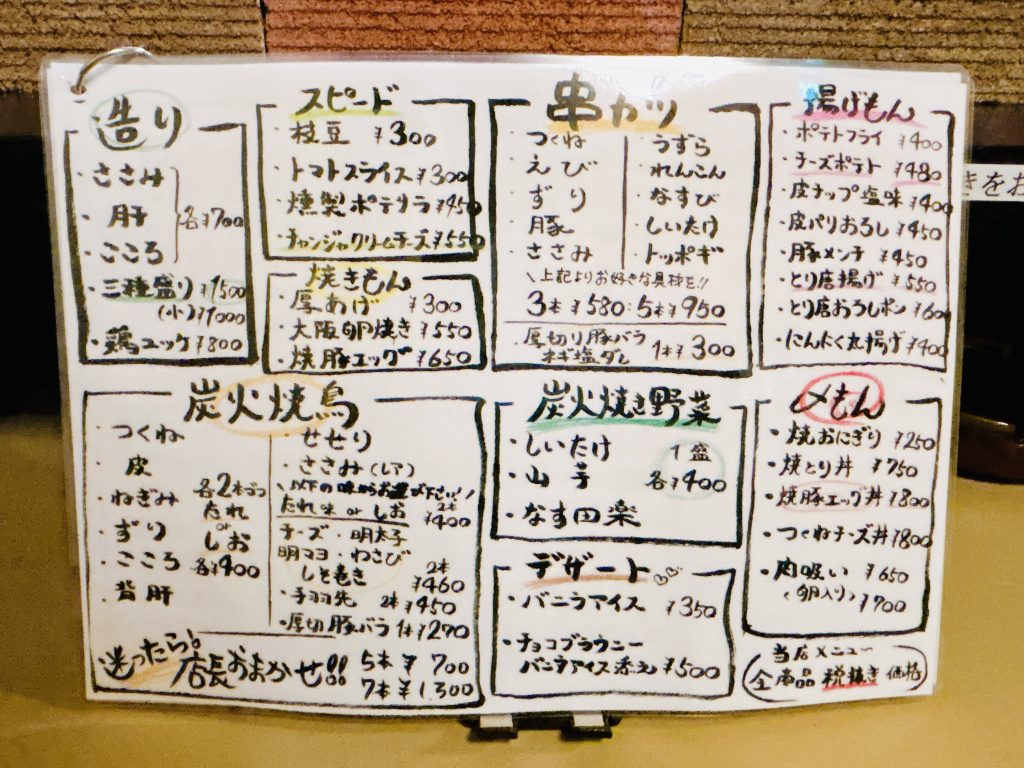 造り
・ささみ
・肝
・こころ
各¥700
・三種盛り ¥1500
(小)¥1000
・鶏ユッケ ¥800
スピード
・枝豆 ¥300
・トマトスライス ¥300
・燻製ポテサラ ¥450
・チャンジャクリームチーズ ¥550
焼きもん
・厚あげ ¥300
・大阪卵焼き ¥550
・焼豚エッグ ¥650
串カツ
・つくね
・えび
・ずり
・豚
・ささみ
・うずら
・れんこん
・なすび
・しいたけ
・トッポギ
\上記よりお好きな具材を!!
3本¥580:5本¥950
・厚切り豚バラ
ネギ塩ダレ 1本¥300
揚げもん
・ポテトフライ ¥400
・チーズポテト ¥480
・皮チップ塩味 ¥400
・皮パリおろし ¥450
・豚メンチ ¥450
・とり唐揚げ ¥550
・とり唐おろしポン ¥600
・にんにく丸揚げ ¥400
炭火焼鳥
・つくね
・皮
・ねぎみ
・ずり
・こころ
・背肝
各2本づつ
たれ
or
しお
各¥400
・せせり
・ささみ(レア)
\以下の味からお選び下さい!/
たれ味 or しお 2本 ¥400
チーズ・明太子
明マヨ・わさび
しそ巻き 2本 ¥460
・手羽先 2本 ¥450
・厚切豚バラ 1本¥270
迷ったら!
店長おまかせ!!
5本 ¥700
7本 ¥1.300
炭火焼き野菜
・しいたけ
・山芋
・なす田楽
1盛
各¥400
デザート
・バニラアイス ¥350
・チョコブラウニー
バニラアイス添え ¥500
〆もん
・焼おにぎり ¥250
・焼とり丼 ¥750
・焼豚エッグ丼 ¥800
・つくねチーズ丼 ¥800
・肉吸い ¥650
(卵入り) ¥700
当店メニュー
全商品 税抜き 価格
きをお